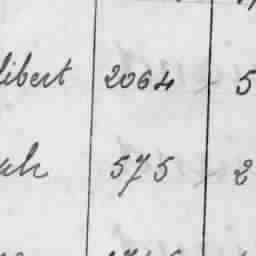 libert 2064 5
575 2